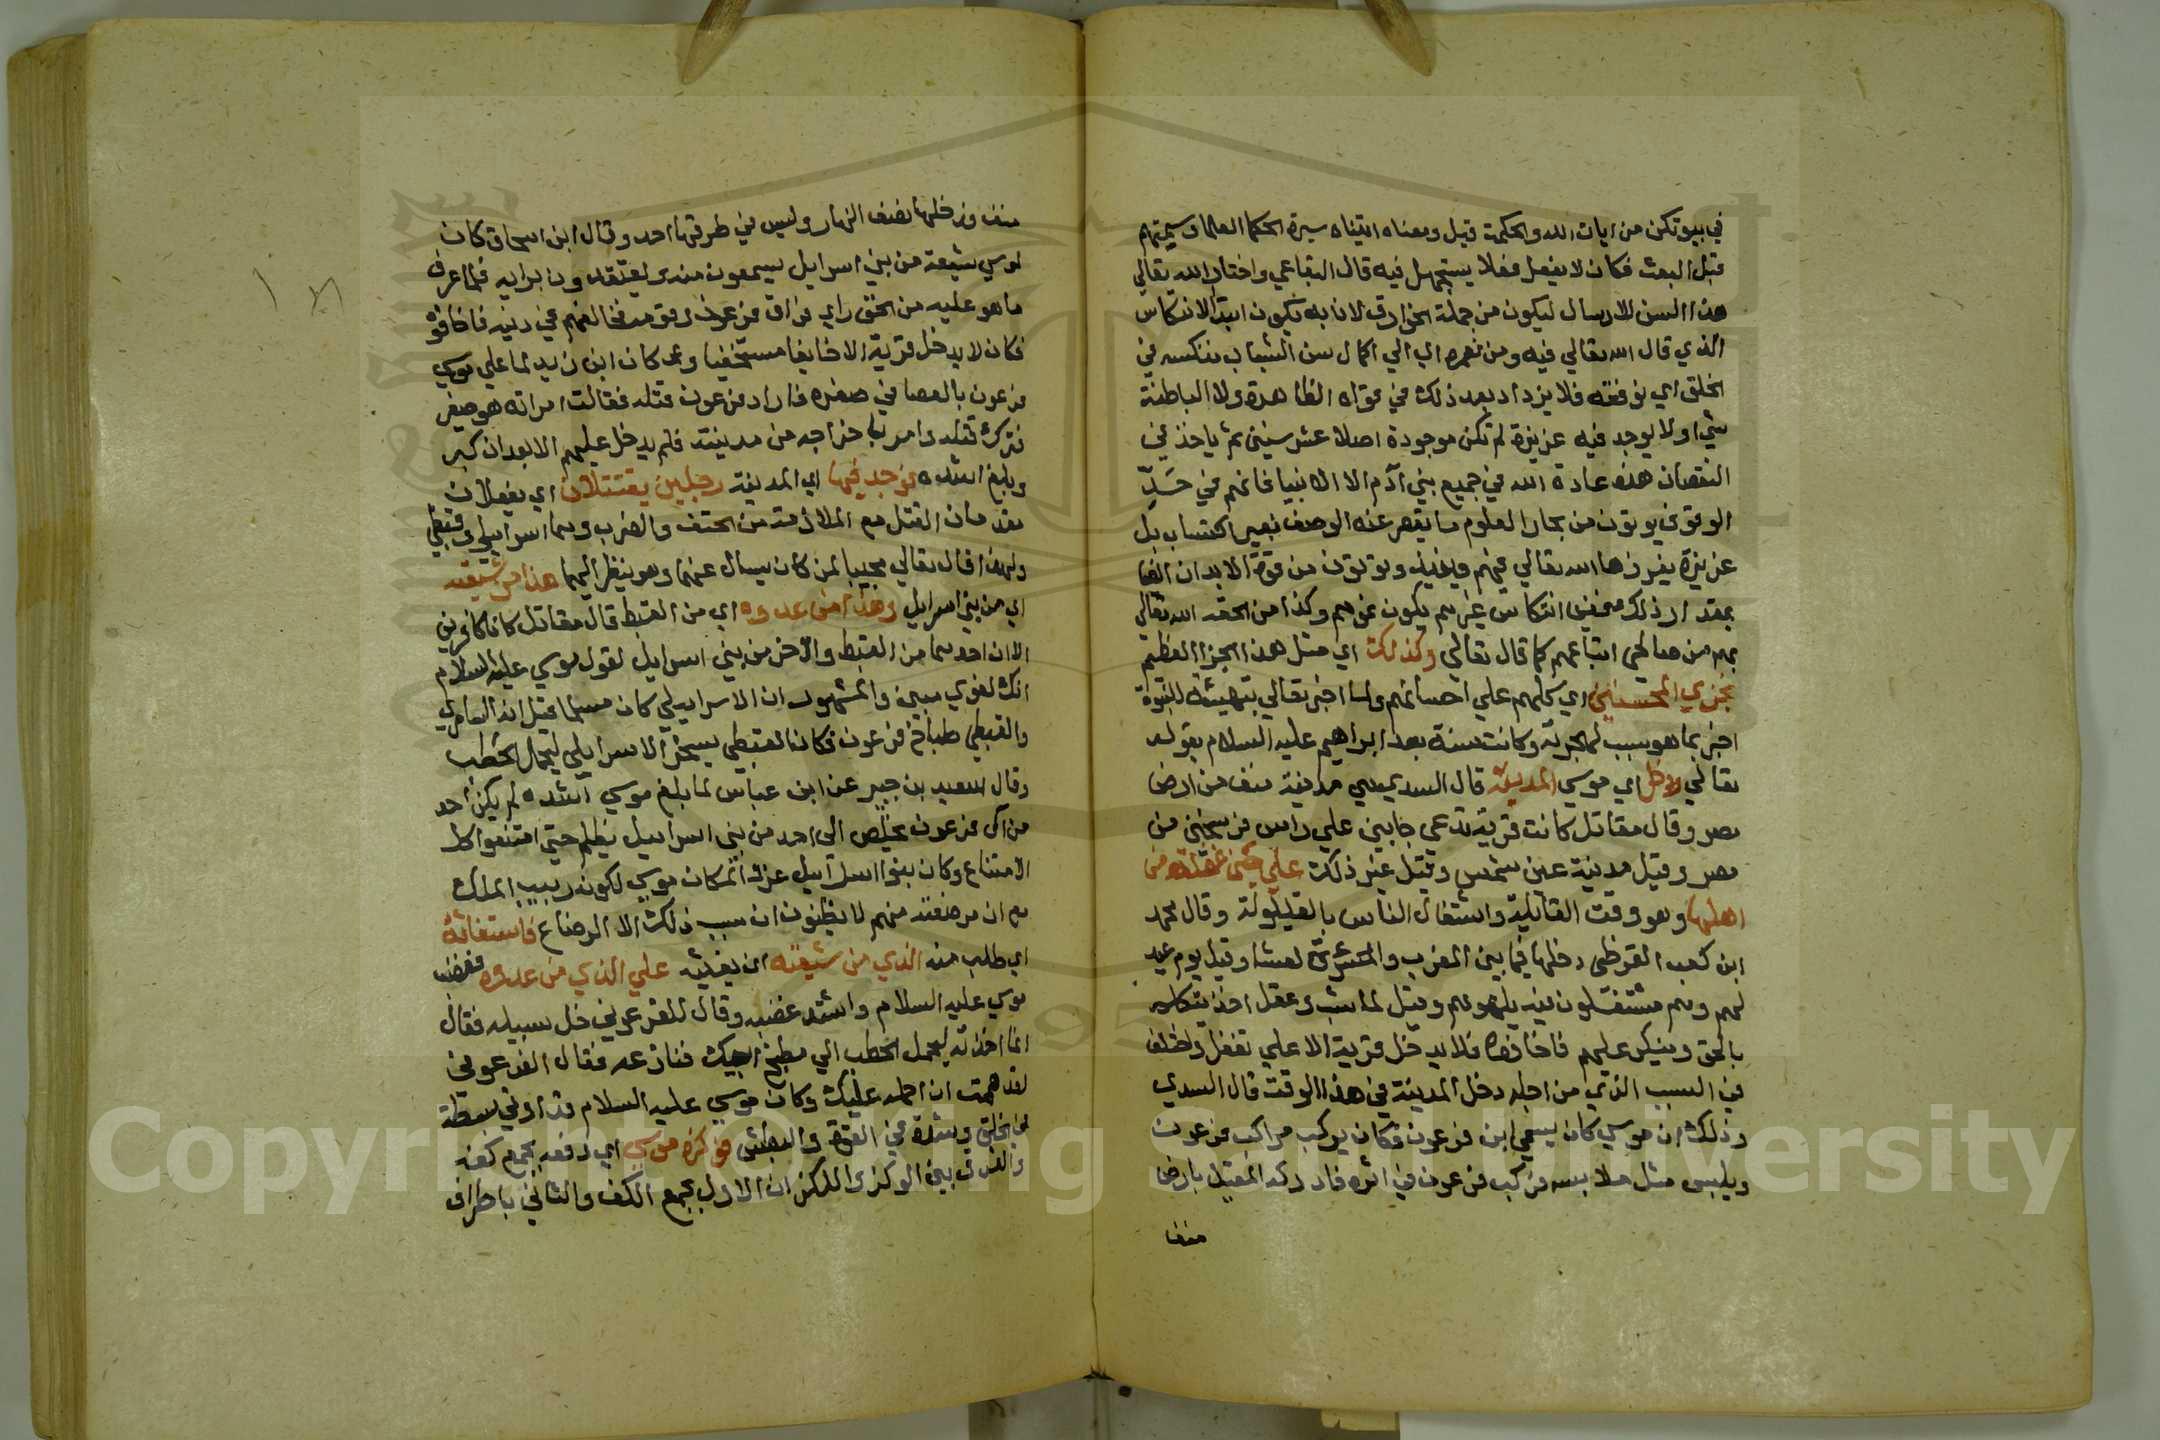 في بيوتكن من ايات الله والحكمة قيل ومعناه اتيناه سيرة الحكما العلما وسمتهم
قبل البعث فكان لا يفعل فعلا يستجهل فيه قال البقاعي واختار الله تعالي
هذا السن للارسال ليكون من جملة الخوارق لان به يكون ابتدا الانتكاس
الذي قال الله تعالي فيه ومن نعمره اي الي اكمال سن الشباب ننكسه في
الخلق اي نوقفه فلا يزداد بعد ذلك في قواه الظاهرة ولا الباطنة
شي ولا يوجد فيه غريزة لم تكن موجودة اصلا عشر سنين ثم ياخذ في
النقصان هذه عادة الله في جميع بني آدم الا الانبيا فانهم في حَدِّ
الوقوف يوتون من بحار العلوم ما يقصر عنه الوصف بغير اكتساب بل
غريزة يغرزها الله تعالي فيهم ويوتون من قوة الابدان ايضا
بمقدار ذلك ففي انتكاس غيرهم يكون نموهم وكذا من الحقه الله تعالي
بهم من صالحي اتباعهم كما قال تعالي وكذلك اي مثل هذا الجزا العظيم
نجزي المحسنين اي كلهم علي احسانهم ولما اخبر تعالي بتهيئته للنبوة
اخبر بما هو سبب لهجرته وكانت سنة بعد ابراهيم عليه السلام بقوله
تعالي ودخل اي موسي المدينة قال السدي هي مدينة منف من ارض
مصر وقال مقاتل كانت قرية تدعي حابين علي راس فرسخين من
مصر وقيل مدينة عين شمس وقيل غير ذلك علي حين غفلة من
اهلها وهو وقت القائلة واشتغال الناس بالقيلولة وقال محمد
ابن كعب القرظي دخلها فيما بين المغرب والعشا وقيل يوم عيد
لهم وهم مشتغلون فيه بلهوهم وقيل لما شب وعقل اخذ يتكلم
بالحق وينكر عليهم فاخافوه فلا يدخل قرية الا علي تغفل واختلف
في السبب الذي من اجله دخل المدينة في هذا الوقت قال السدي
وذلك ان موسي كان يسمي ابن فرعون فكان يركب مراكب فرعون
ويلبس مثل ملابسه فركب فرعون في اثره فادركه المقيل بارض
منف
منف فدخلها نصف النهار وليس في طرقها احد وقال ابن اسحاق كان
لموسي شيعة من بني اسرايل يسمعون منه ويعتقدون برايه فلما عرف
ما هو عليه من الحق راي فراق فرعون وقومه فخالفهم في دينه فاخافوه
فكان لا يدخل قرية الا خايفا مستخفيا وكان ابن زيد لما علي موسي
فرعون بالعصا في صغره فاراد فرعون قتله فقالت امراته هو صغير
فترك قتله وامر باخراجه من مدينته فلم يدخل عليهم الا بعد ان كبر
وبلغ اشده فوجد فيها اي المدينة رجلين يقتتلان اي يفعلان
مقدمات القتل مع الملازمة من الحتف والضرب وهما اسرايلي وقبطي
ولهذا قال تعالي مجيبا لمن كان يسال عنهما وهو ينظر اليهما هذا من شيعته
اي من بني اسرايل وهذا من عدوه اي من القبط قال مقاتل كانا كافرين
الا ان احدهما من القبط والآخر من بني اسرايل لقول موسي عليه السلام
انك لغوي مبين والمشهور ان الاسرايلي كان مسلما قيل انه السامري
والقبطي طباخ فرعون فكان القبطي يسخر الاسرايلي ليحمل الحطب
وقال سعيد بن جبير عن ابن عباس لما بلغ موسي اشده لم يكن احد
من آل فرعون يخلص الي احد من بني اسرايل بظلم حتي امتنعوا كل
الامتناع وكان بنوا اسرايل عزوا لمكان موسي لكونه ربيب الملك
مع ان مرضعته منهم لا يظنون ان سبب ذلك الا الرضاع فاستغاثه
اي طلب منه الذي من شيعته ان يغيثه علي الذي من عدوه فغضب
موسي عليه السلام واشتد غضبه وقال للفرعوني خل سبيله فقال
انما اخذته ليحمل الحطب الي مطبخ ابيك فنازعه فقال الفرعوني
لقد هممت ان احمله عليك وكان موسي عليه السلام قد اوتي بسطة
في الخلق وشدة في القوة والبطش فوكزه موسي اي دفعه بجمع كفه
والفرق بين الوكز واللكز ان الاول بجمع الكف والثاني باطراف